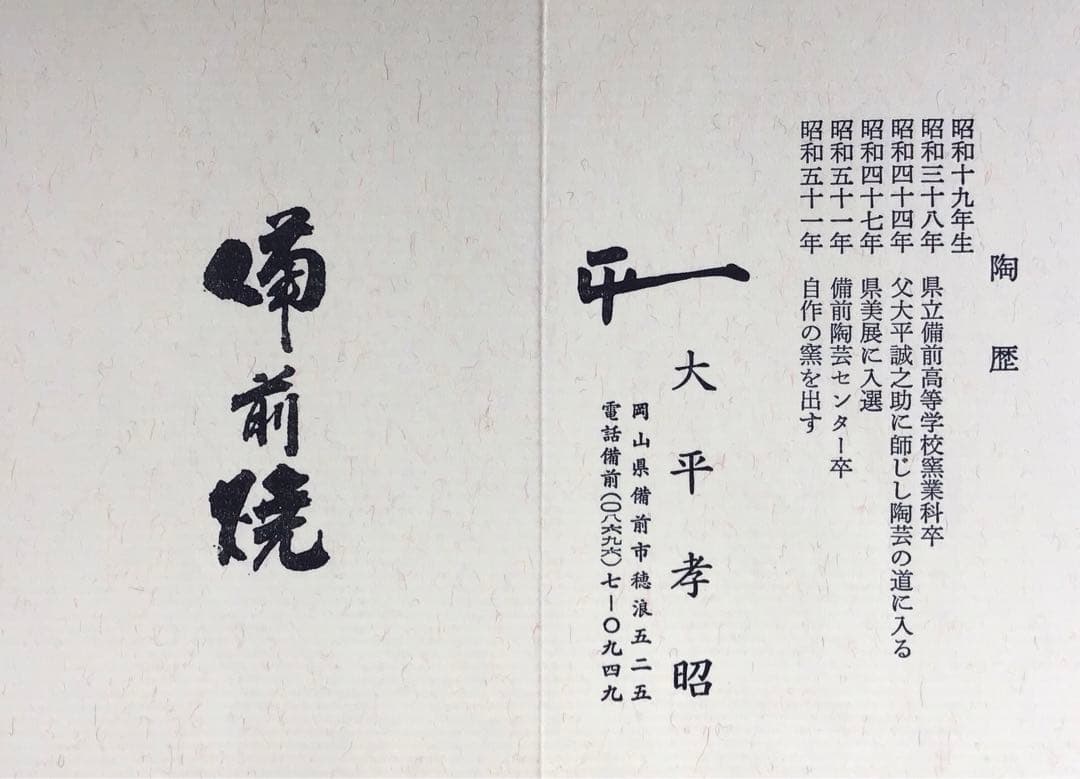 陶歴
昭和十九年生
昭和三十八年 県立備前高等学校窯業科卒
昭和四十四年 父大平誠之助に師じし陶芸の道に入る
昭和四十七年 県美展に入選
昭和五十一年 備前陶芸センター卒
昭和五十一年 自作の窯を出す
大平孝昭
岡山県備前市穂浪五二五
電話備前(〇八六九六)七-〇九四九
備前焼